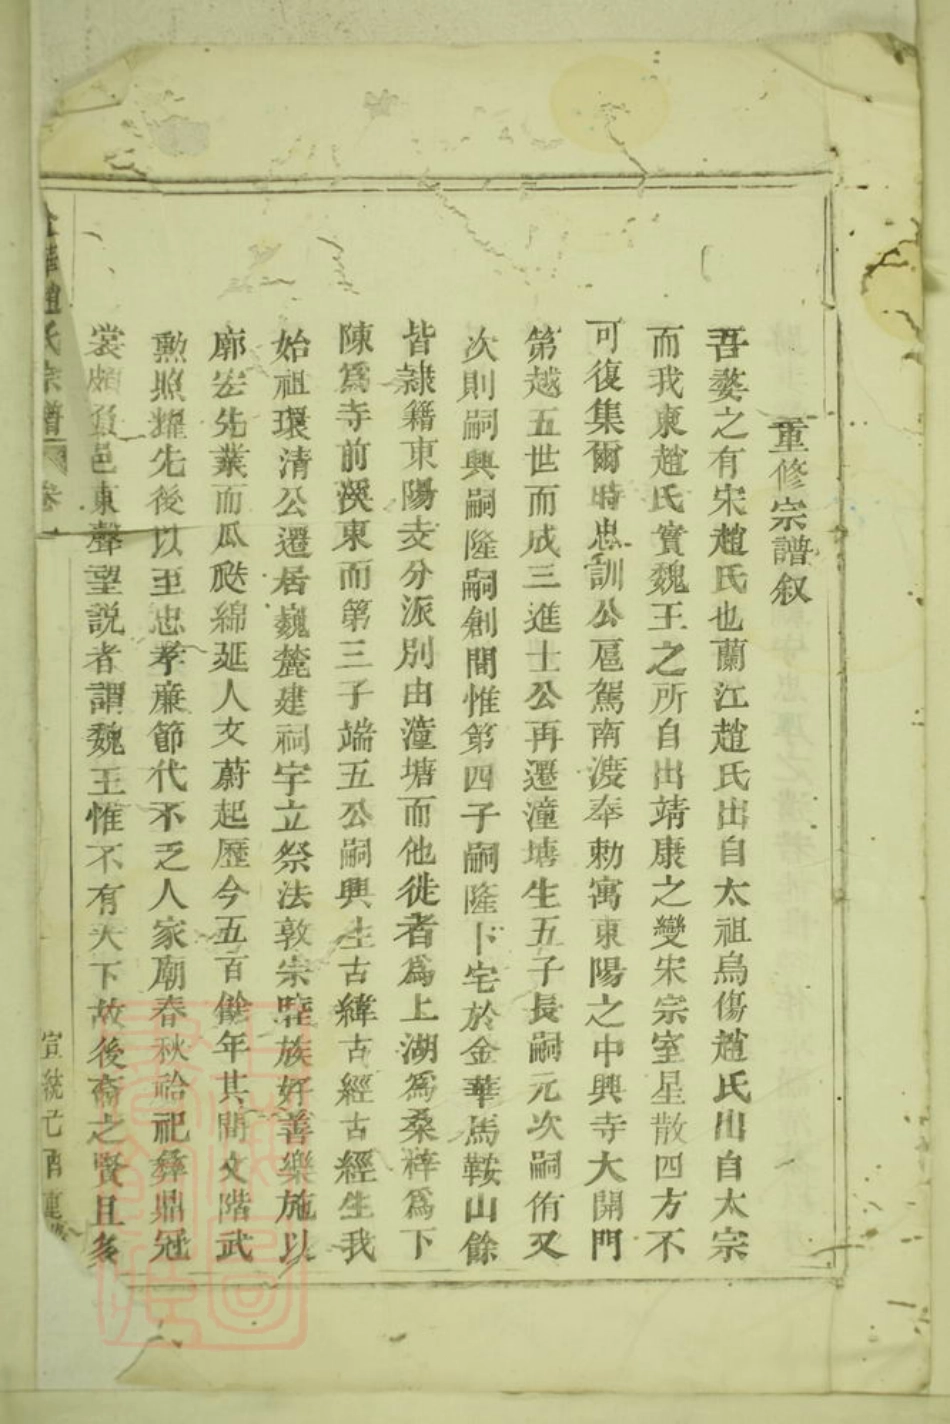 重修宗譜叙
吾婺之有宋趙氏也蘭江趙氏出自太祖烏傷趙氏出自太宗
而我東趙氏實魏王之所自出靖康之變宋宗室星散四方不
可復集爾時忠訓公扈駕南渡奉勅寓東陽之中興寺大開門
第越五世而成三進士公再遷潼塘生五子長嗣元次嗣侑又
次則嗣興嗣隆嗣創間惟第四子嗣隆卜宅於金華馬鞍山餘
皆隷籍東陽支分派別由潼塘而他徙者爲上湖爲桑梓爲下
陳爲寺前溪東而第三子端五公嗣興生古緯古經古經生我
始祖環清公遷居巍麓建祠宇立祭法敦宗睦族好善樂施以
廓宏先業而瓜瓞綿延人文蔚起歷今五百餘年其間文階武
勲照耀先後以至忠孝廉節代不乏人家廟春秋祫祀彝鼎冠
裳頗爲邑東聲望説者謂魏王惟不有天下故後裔之賢且多
華趙氏宗譜 卷
宣統己酉重